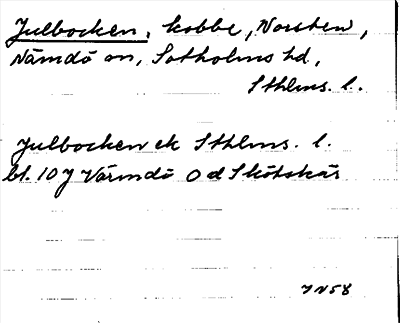 Julbocken, kobbe, Norsten,
Nämdö sn, Sotholms hd,
Sthlms. l.
Julbocken ek Sthlms. l.
bl. 10 J Värmdö O d Skötskär
JN58